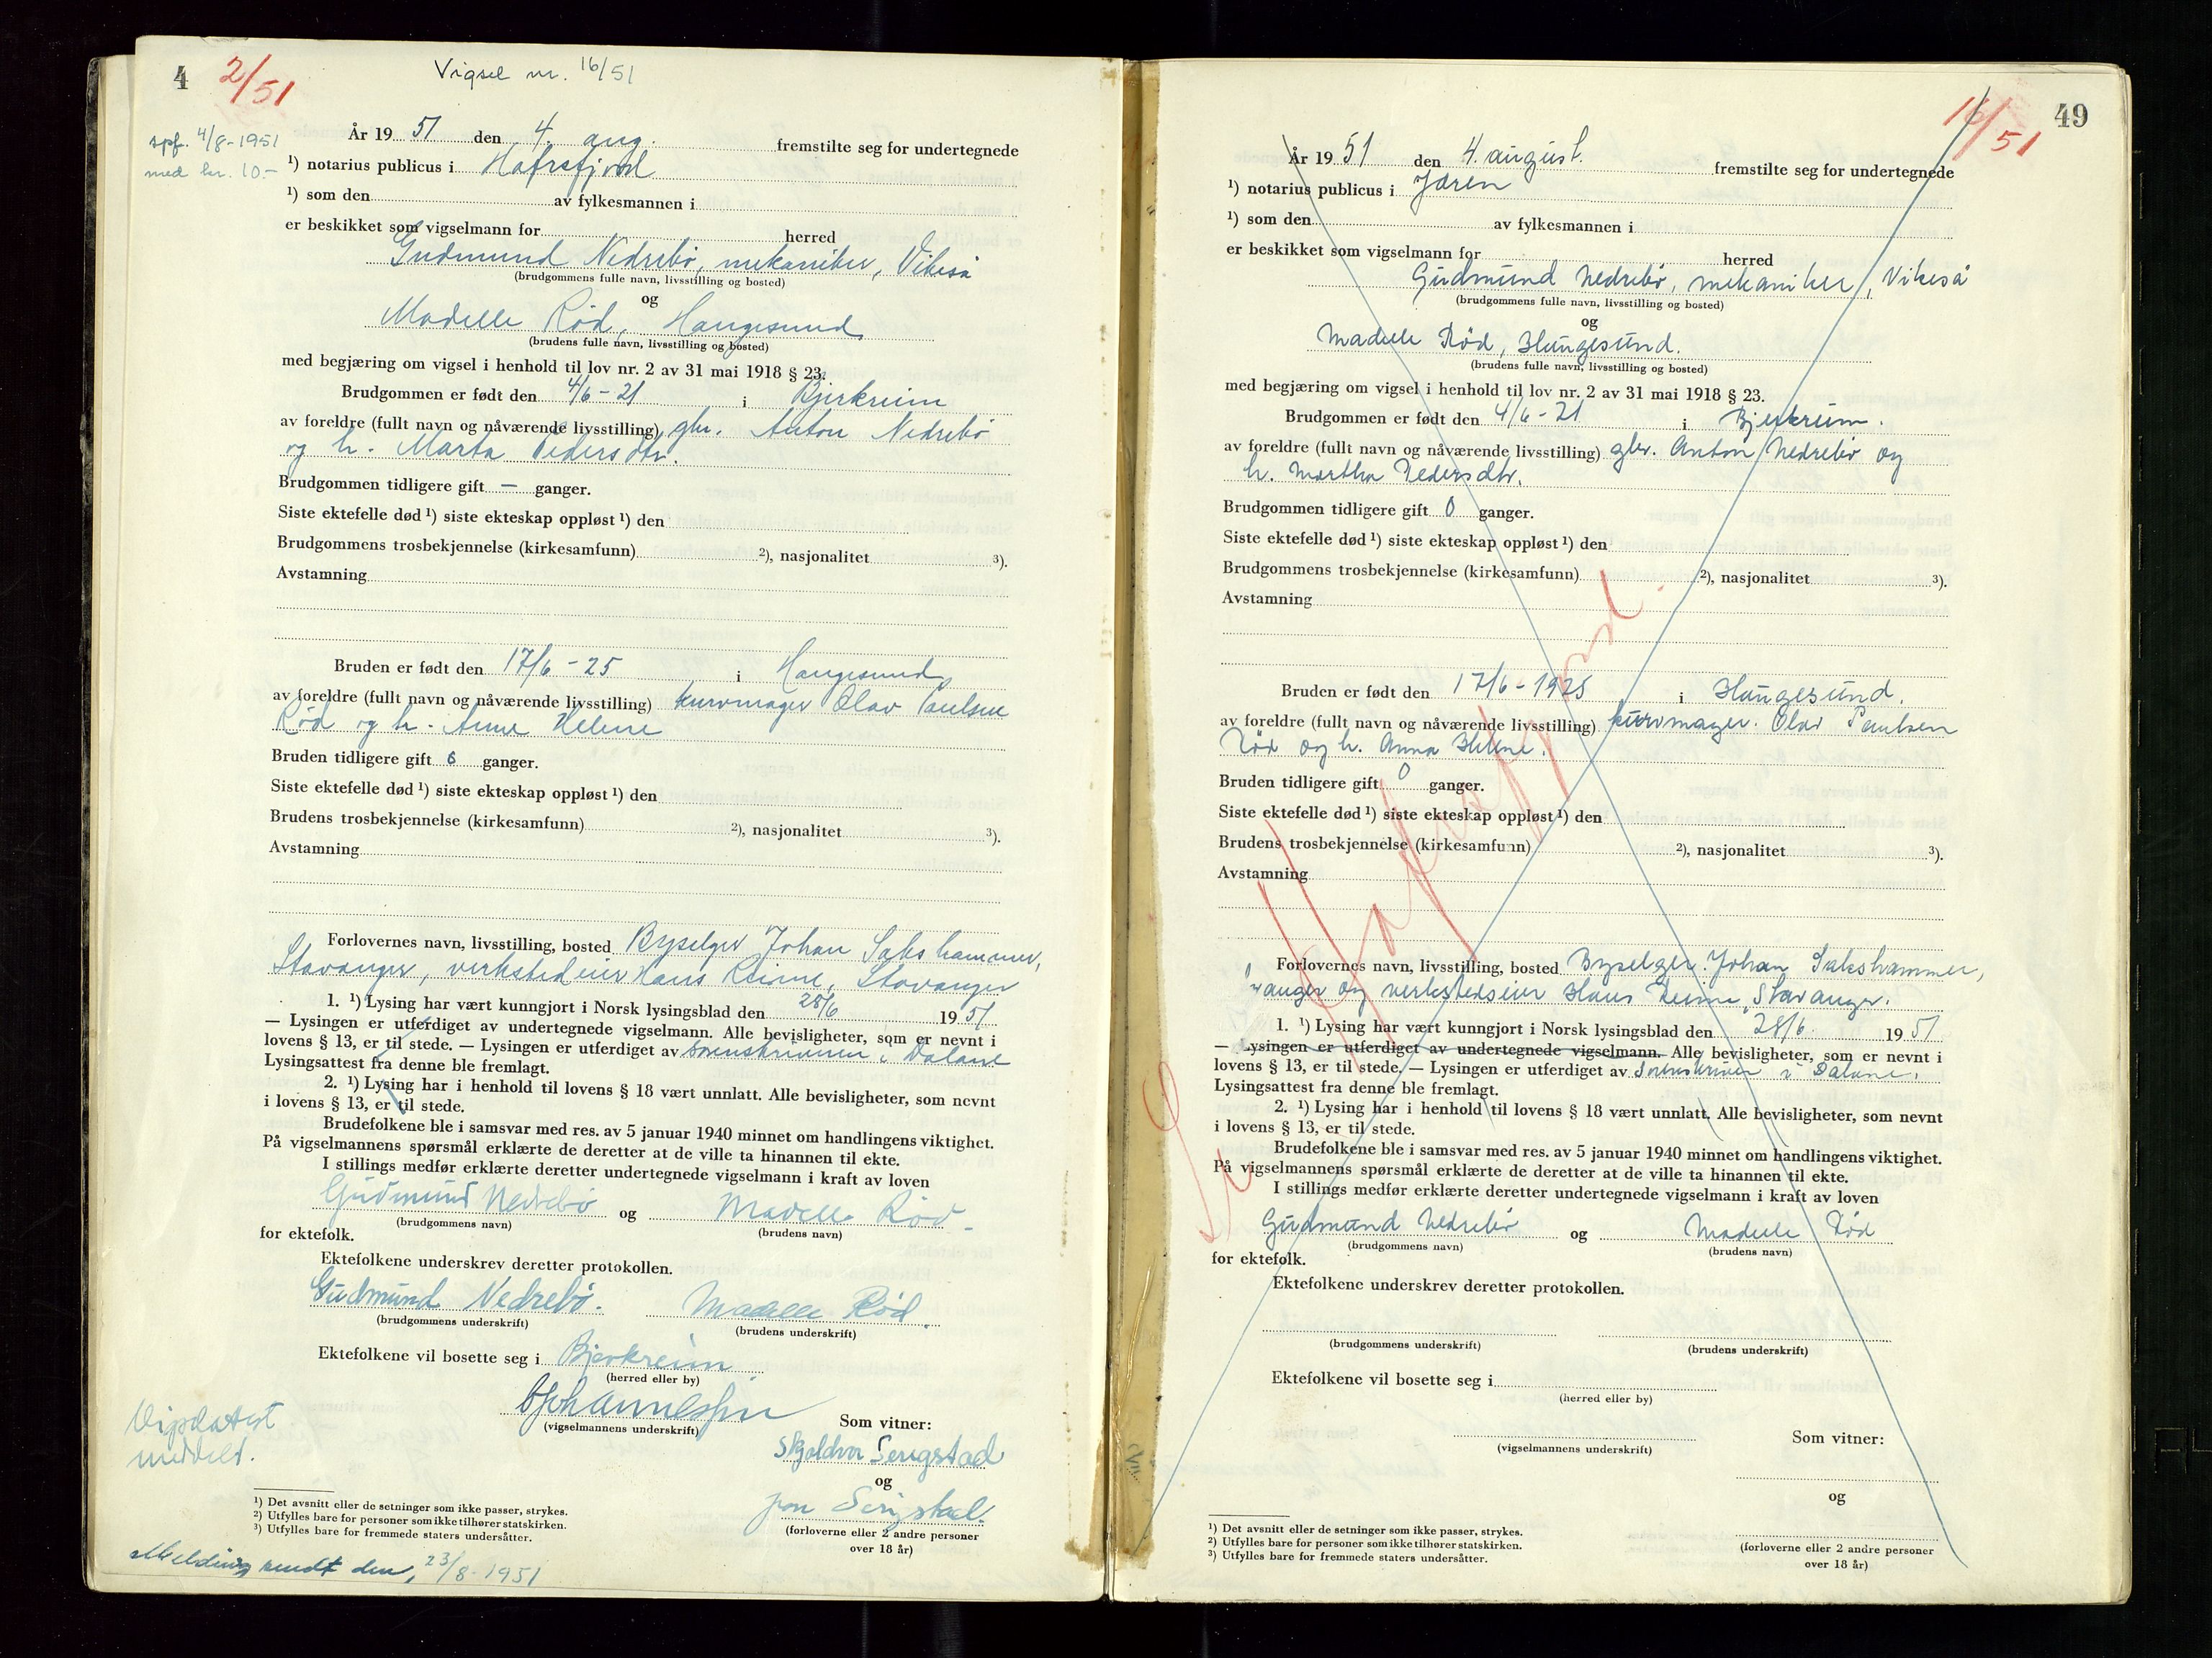 4 2/51 Vigsel nr. 16/51
spf. 4/8-1951
med kr. 10.-
År 19 51 den 4. aug. fremstilte seg for undertegnede
¹) notarius publicus i Hafrsfjord
¹) som den av fylkesmannen i
er beskikket som vigselmann for herred
Gudmund Nedrebø, mekaniker, Vikeså
(brudgommens fulle navn, livsstilling og bosted)
og
Madelle Rød, Haugesund
(brudens fulle navn, livsstilling og bosted)
med begjæring om vigsel i henhold til lov nr. 2 av 31 mai 1918 § 23.
Brudgommen er født den 4/6-21 i Bjerkreim
av foreldre (fullt navn og nåværende livsstilling) gbr. Anton Nedrebø
og h. Marta Pedersdtr.
Brudgommen tidligere gift — ganger.
Siste ektefelle død ¹) siste ekteskap oppløst ¹) den
Brudgommens trosbekjennelse (kirkesamfunn) ²), nasjonalitet ³).
Avstamning
Bruden er født den 17/6-25 i Haugesund
av foreldre (fullt navn og nåværende livsstilling) kurvmager Olav Paulsen
Rød og h. Anne Helene
Bruden tidligere gift 0 ganger.
Siste ektefelle død ¹) siste ekteskap oppløst ¹) den
Brudens trosbekjennelse (kirkesamfunn) ²), nasjonalitet ³).
Avstamning
Forlovernes navn, livsstilling, bosted Byselger Johan Sakshammer,
Stavanger, verkstedeier Hans Reime, Stavanger
1. ¹) Lysing har vært kunngjort i Norsk lysingsblad den 28/6 19 51
— Lysingen er utferdiget av undertegnede vigselmann. Alle bevisligheter, som er nevnt i
lovens § 13, er til stede. — Lysingen er utferdiget av sorenskriveren i Dalane
Lysingsattest fra denne ble fremlagt.
2. ¹) Lysing har i henhold til lovens § 18 vært unnlatt. Alle bevisligheter, som nevnt
i lovens § 13, er til stede.
Brudefolkene ble i samsvar med res. av 5 januar 1940 minnet om handlingens viktighet.
På vigselmannens spørsmål erklærte de deretter at de ville ta hinannen til ekte.
I stillings medfør erklærte deretter undertegnede vigselmann i kraft av loven
Gudmund Nedrebø og Madelle Rød
(brudgommens navn) (brudens navn)
for ektefolk.
Ektefolkene underskrev deretter protokollen.
Gudmund Nedrebø. Madelle Rød.
(brudgommens underskrift) (brudens underskrift)
Ektefolkene vil bosette seg i Bjerkreim
(herred eller by)
(vigselmannens underskrift) Som vitner:
Vigselattest
meddelt.
Skjoldvor Serigstad
og
Jon Serigstad.
(forloverne eller 2 andre personer
over 18 år)
¹) Det avsnitt eller de setninger som ikke passer, strykes.
²) Utfylles bare for personer som ikke tilhører statskirken.
³) Utfylles bare for fremmede staters undersåtter.
Melding sendt den, 23/8-1951
16/51 49
År 19 51 den 4. august. fremstilte seg for undertegnede
¹) notarius publicus i Jæren
¹) som den av fylkesmannen i
er beskikket som vigselmann for herred
Gudmund Nedrebø, mekaniker, Vikeså
(brudgommens fulle navn, livsstilling og bosted)
og
Madelle Rød, Haugesund.
(brudens fulle navn, livsstilling og bosted)
med begjæring om vigsel i henhold til lov nr. 2 av 31 mai 1918 § 23.
Brudgommen er født den 4/6-21 i Bjerkreim.
av foreldre (fullt navn og nåværende livsstilling) gbr. Anton Nedrebø og
h. Martha Pedersdtr.
Brudgommen tidligere gift 0 ganger.
Siste ektefelle død ¹) siste ekteskap oppløst ¹) den
Brudgommens trosbekjennelse (kirkesamfunn) ²), nasjonalitet ³).
Avstamning
Bruden er født den 17/6-1925 i Haugesund.
av foreldre (fullt navn og nåværende livsstilling) kurvmager. Olav Paulsen
Rød og h. Anna Helene.
Bruden tidligere gift 0 ganger.
Siste ektefelle død ¹) siste ekteskap oppløst ¹) den
Brudens trosbekjennelse (kirkesamfunn) ²), nasjonalitet ³).
Avstamning
Se Hafrsfjord.
Forlovernes navn, livsstilling, bosted Byselger. Johan Sakshammer,
vanger og verkstedseier Hans Reime, Stavanger.
1. ¹) Lysing har vært kunngjort i Norsk lysingsblad den 28/6. 19 51
— Lysingen er utferdiget av undertegnede vigselmann. Alle bevisligheter, som er nevnt i
lovens § 13, er til stede. — Lysingen er utferdiget av Sorenskriver i Dalane.
Lysingsattest fra denne ble fremlagt.
2. ¹) Lysing har i henhold til lovens § 18 vært unnlatt. Alle bevisligheter, som nevnt
i lovens § 13, er til stede.
Brudefolkene ble i samsvar med res. av 5 januar 1940 minnet om handlingens viktighet.
På vigselmannens spørsmål erklærte de deretter at de ville ta hinannen til ekte.
I stillings medfør erklærte deretter undertegnede vigselmann i kraft av loven
Gudmund Nedrebø og Madelle Rød
(brudgommens navn) (brudens navn)
for ektefolk.
Ektefolkene underskrev deretter protokollen.
(brudgommens underskrift) (brudens underskrift)
Ektefolkene vil bosette seg i
(herred eller by)
(vigselmannens underskrift) Som vitner:
og
(forloverne eller 2 andre personer
over 18 år)
¹) Det avsnitt eller de setninger som ikke passer, strykes.
²) Utfylles bare for personer som ikke tilhører statskirken.
³) Utfylles bare for fremmede staters undersåtter.